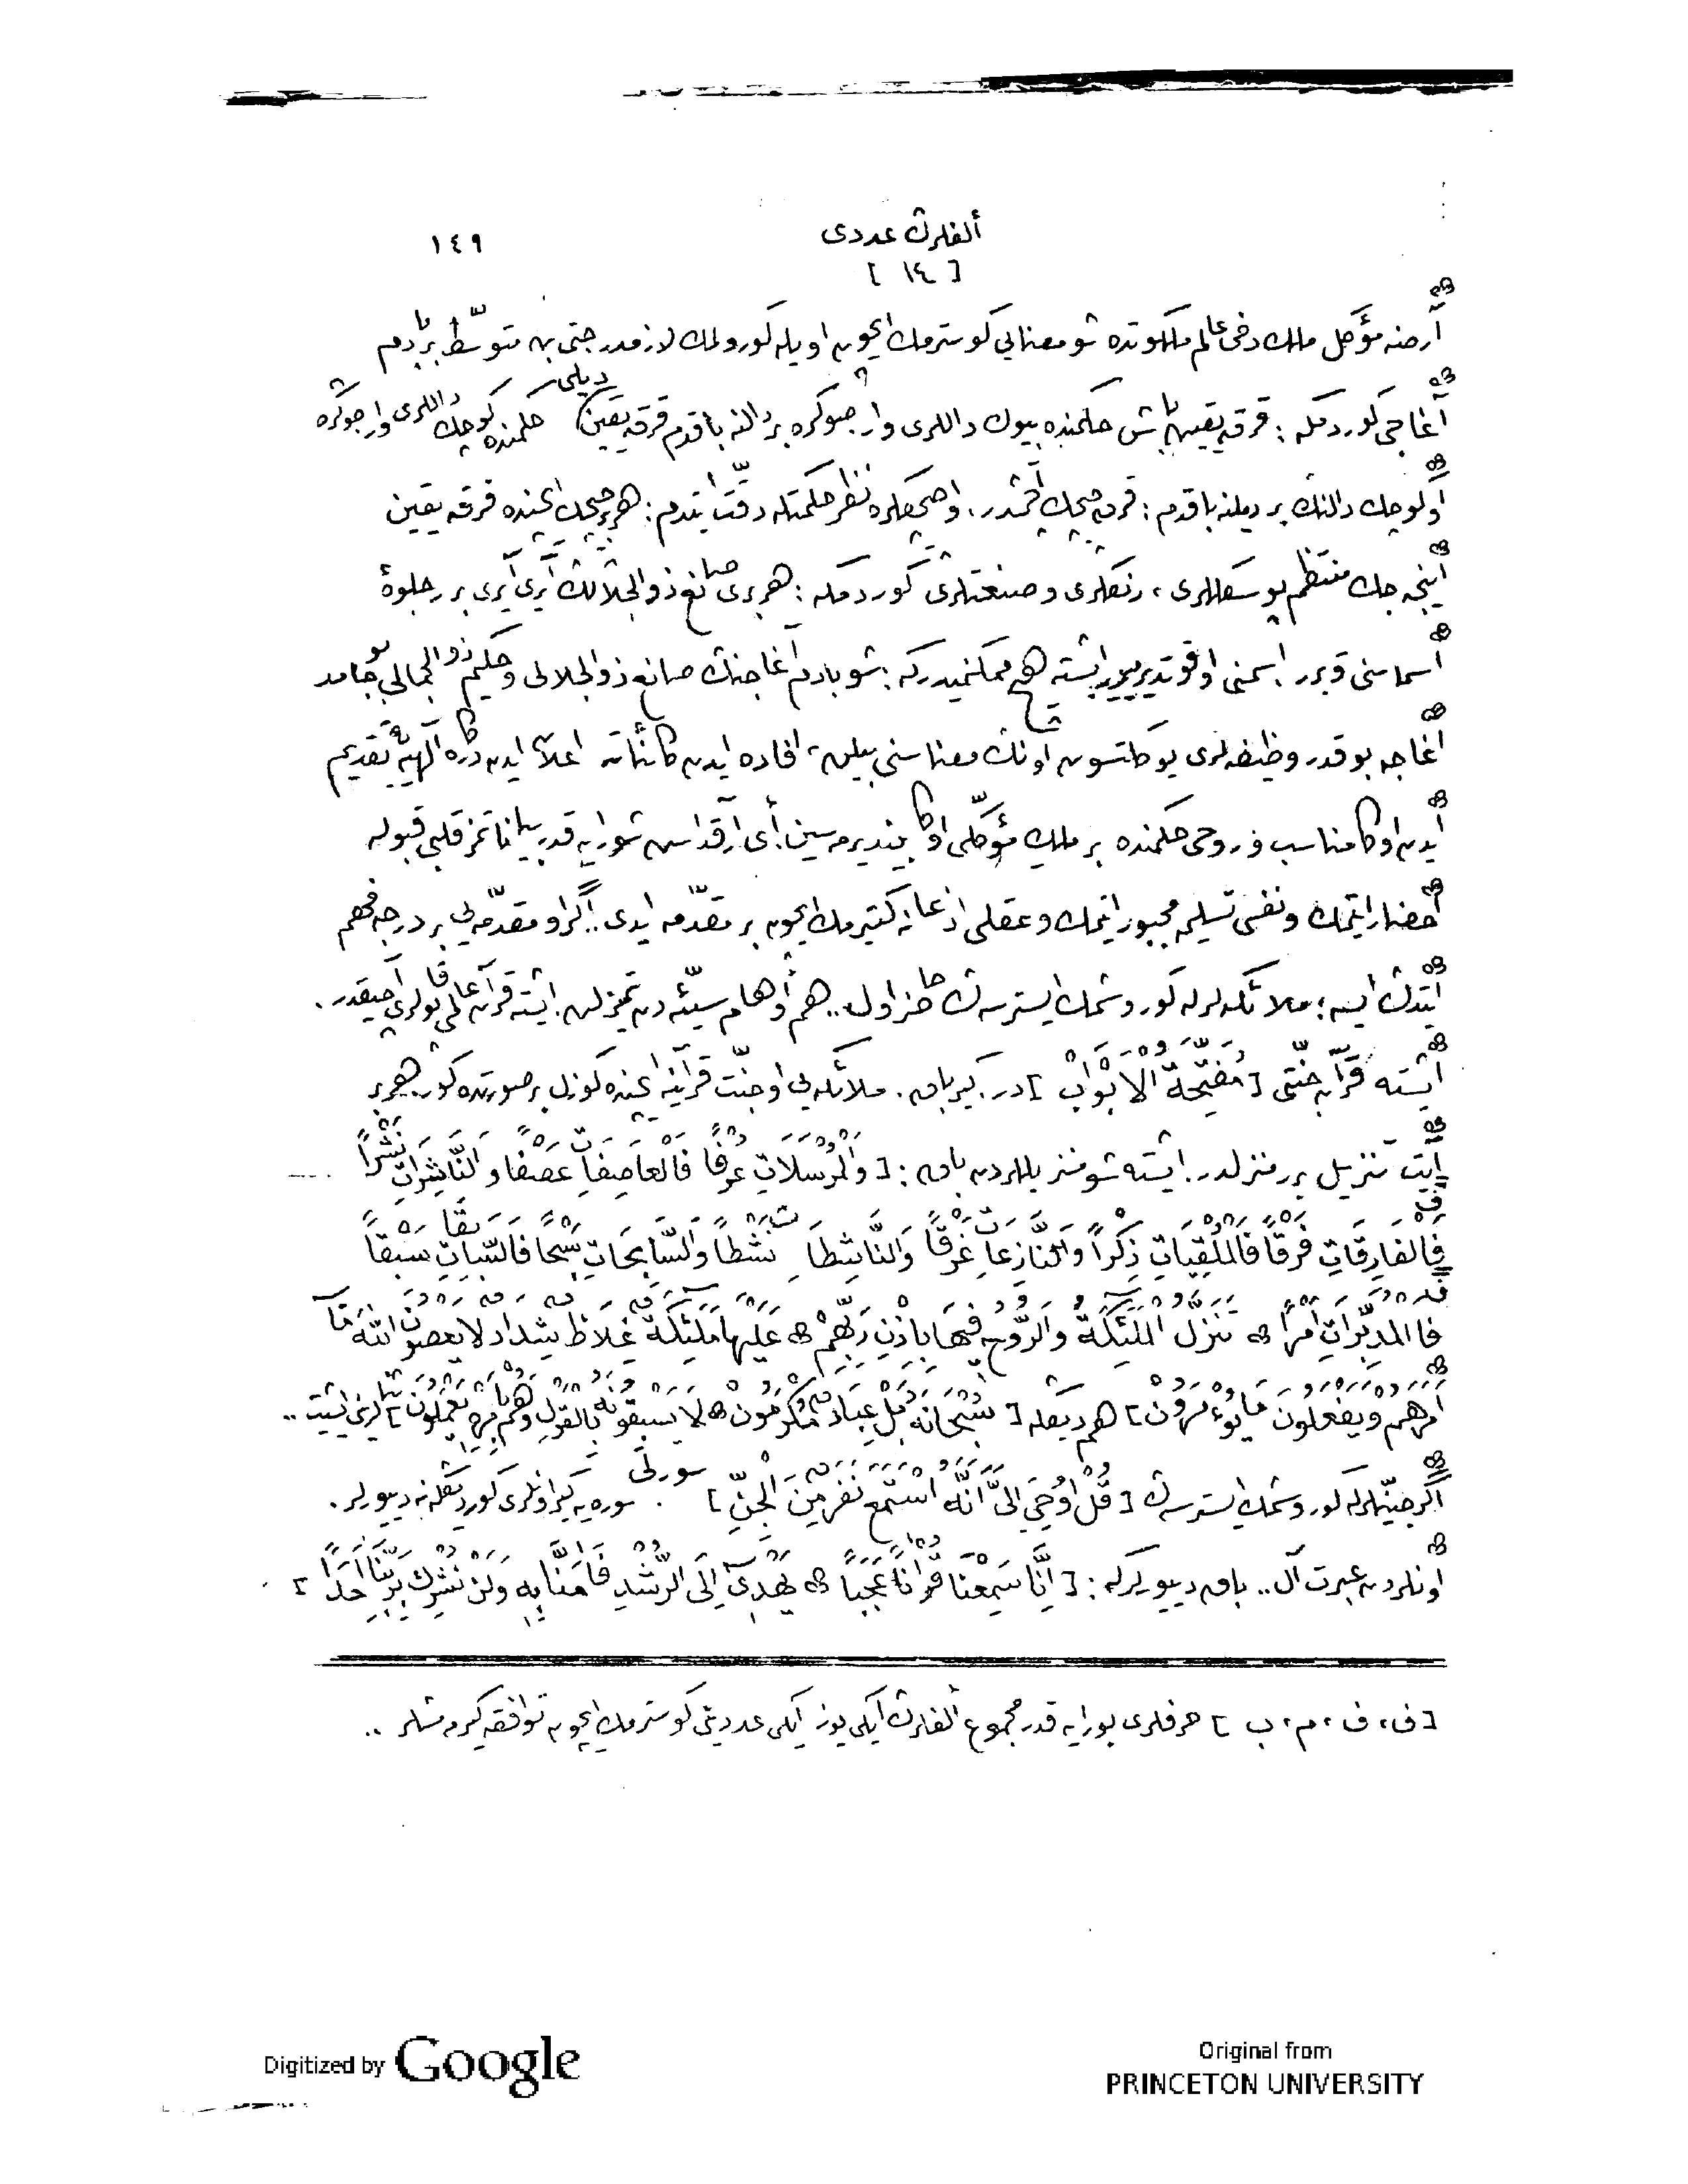 ألفلرڭ عددی
١٤٩
[ ١٤ ]
آرضه مؤكل ملك دخی عالم ملكوتده شو معنايی كوسترمك ايچون اويله كورولمك لازمدر حتی بن متوسط بر بادم
آغاجی كوردمكه : قرقه يقين باش حكمنده بيوك داللری وار صوكره بر دالنه باقدم قرقه يقين ديلی حكمنده كوچك داللری وار صوكره
او كوچك دالنڭ بر ديلنه باقدم : قرق چيچك آچمشدر. او چيچكلره نظر حكمتله دقت ايتدم : هر بر چيچك ايچنده قرقه يقين
اينجه جك منتظم پوسكللری ، رنكلری و صنعتلری كوردمكه : هر بری صانع ذوالجلالڭ آيری آيری بر جلوۀ
اسماسنی و برر اسمنی اوقوتديرييور ايشته هيچ ممكنميدركه : شو بادم آغاجنڭ صانع ذوالجلالی و حكيم ذوالجمالی بو جامد
آغاجه بو قدر وظيفه لری يوكلتسون اونڭ معناسنی بيلن ، افاده ايدن كائناته اعلان ايدن دركاه الهيه تقديم
ايدن اوكا مناسب و روحی حكمنده بر ملك مؤكلی اوكا بينديرمه سين. أی آرقداش شورايه قدر بياناتمز قلبی قبوله
احضار ايتمك و نفسی تسليمه مجبور ايتمك و عقلی اذعانه كتيرمك ايچون بر مقدّمه ايدی.. اكر او مقدّمه يی بر درجه فهم
ايتدڭ ايسه ؛ ملائكه لرله كوروشمك ايسترسه ڭ حاضر اول.. هم أوهام سيّئه دن تميزلن. ايشته قرآن عالمی قاپولری آچيقدر.
ايشته قرآن جنّتی [ مُفَتَّحَةُ الْاَبْوَابْ ] در. كير باق. ملائكه يی او جنّت قرآنيه ايچنده كوزل بر صورتده كور هر بر
آيت تنزيل برر منزلدر. ايشته شو منزيللردن باق : [ وَالْمُرْسَلَاتِ عُرْفًا فَالْعَاصِفَاتِ عَصْفًا وَالنَّاشِرَاتِ نَشْرًا
فَالْفَارِقَاتِ فَرْقًا فَالْمُلْقِيَاتِ ذِكْرًا وَالنَّازِعَاتِ غَرْقًا وَالنَّاشِطَاتِ نَشْطًا وَالسَّابِحَاتِ سَبْحًا فَالسَّابِقَاتِ سَبْقًا
فَالْمُدَبِّرَاتِ اَمْرًا ۞ تَنَزَّلُ الْمَلٰئِكَةُ وَالرُّوحُ فِيهَا بِاِذْنِ رَبِّهِمْ ۞ عَلَيْهَا مَلٰئِكَةٌ غِلَاظٌ شِدَادٌ لَا يَعْصُونَ اللّٰهَ مَا
اَمَرَهُمْ وَيَفْعَلُونَ مَا يُؤْمَرُونَ ] هم ديڭله [ سُبْحَانَهُ بَلْ عِبَادٌ مُكْرَمُونَ ۞ لَا يَسْبِقُونَهُ بِالْقَوْلِ وَهُمْ بِاَمْرِهِ يَعْمَلُونَ ] ايشيت ..
اكر جنّيلرله كوروشمك ايسترسه ڭ [ قُلْ اُوحِيَ اِلَيَّ اَنَّهُ اسْتَمَعَ نَفَرٌ مِنَ الْجِنِّ ] سورلی سوره يه كير اونلری كور ديڭله نه دييورلر.
اونلردن عبرت آل.. باق دييورلركه : [ اِنَّا سَمِعْنَا قُرْاٰنًا عَجَبًا ۞ يَهْدِي اِلَى الرُّشْدِ فَاٰمَنَّا بِهِ وَلَنْ نُشْرِكَ بِرَبِّنَا اَحَدًا ]
[ ف ، ف ، م ، ب ] حرفلری بورايه قدر مجموع ألفلرڭ ايكی يوز ايكی عددينی كوسترمك ايچون توافقه كيرمشلر ..
Digitized by Google
Original from
PRINCETON UNIVERSITY